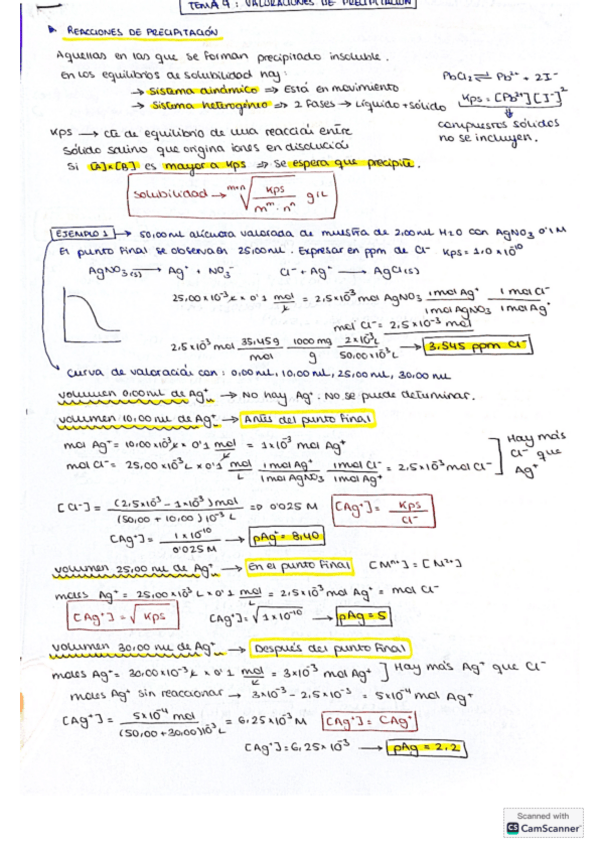 TEMA 9: VALORACIONES DE PRECIPITACIÓN
REACCIONES DE PRECIPITACIÓN
Aquellas en las que se forman precipitado insoluble.
En los equilibrios de solubilidad hay:
→ Sistema dinámico ⇒ Está en movimiento
→ Sistema heterogéneo ⇒ 2 Fases → Líquido + sólido
PbCl₂ ⇌ Pb²⁺ + 2I⁻
Kps = [Pb²⁺][I⁻]²
⇓
compuestos sólidos
no se incluyen.
Kps → cte de equilibrio de una reacción entre
sólido salino que origina iones en disolución
Si [A]×[B] es mayor a Kps ⇒ se espera que precipite.
Solubilidad → ᵐ⁺ⁿ√(Kps / mᵐ · nⁿ) g/L
EJEMPLO 1 → 50,00 mL alícuota valorada de muestra de 2,00 mL H2O con AgNO3 0'1 M
El punto final se observa en 25,00 mL. Expresar en ppm de Cl⁻ Kps = 1,0 × 10⁻¹⁰
AgNO₃(s) → Ag⁺ + NO₃⁻ Cl⁻ + Ag⁺ → AgCl(s)
25,00×10⁻³ L × 0'1 mol/L = 2,5×10⁻³ mol AgNO₃ 1 mol Ag⁺/1 mol AgNO₃ 1 mol Cl⁻/1 mol Ag⁺
mol Cl⁻ = 2,5×10⁻³ mol
2,5×10⁻³ mol 35,45 g/mol 1000 mg/g 2×10⁻³ L/50,00×10⁻³ L → 3,545 ppm Cl⁻
Curva de valoración con: 0,00 mL, 10,00 mL, 25,00 mL, 30,00 mL
Volumen 0,00 mL de Ag⁺ → No hay Ag⁺. No se puede determinar.
Volumen 10,00 mL de Ag⁺ → Antes del punto final
mol Ag⁺ = 10,00×10⁻³ L × 0'1 mol/L = 1×10⁻³ mol Ag⁺
mol Cl⁻ = 25,00×10⁻³ L × 0'1 mol/L 1 mol Ag⁺/1 mol AgNO₃ 1 mol Cl⁻/1 mol Ag⁺ = 2,5×10⁻³ mol Cl⁻
Hay más
Cl⁻ que
Ag⁺
[Cl⁻] = (2,5×10⁻³ − 1×10⁻³) mol / (50,00 + 10,00) 10⁻³ L ⇒ 0'025 M [Ag⁺] = Kps / Cl⁻
[Ag⁺] = 1×10⁻¹⁰ / 0'025 M → pAg = 8,40
Volumen 25,00 mL de Ag⁺ → En el punto final [Mⁿ⁺] = [M²⁺]
moles Ag⁺ = 25,00×10⁻³ L × 0'1 mol/L = 2,5×10⁻³ mol Ag⁺ = mol Cl⁻
[Ag⁺] = √Kps [Ag⁺] = √1×10⁻¹⁰ → pAg = 5
Volumen 30,00 mL de Ag⁺ → Después del punto final
moles Ag⁺ = 30,00×10⁻³ L × 0'1 mol/L = 3×10⁻³ mol Ag⁺ ] Hay más Ag⁺ que Cl⁻
moles Ag⁺ sin reaccionar → 3×10⁻³ − 2,5×10⁻³ = 5×10⁻⁴ mol Ag⁺
[Ag⁺] = 5×10⁻⁴ mol / (50,00 + 30,00) 10⁻³ L = 6,25×10⁻³ M [Ag⁺] = CAg⁺
[Ag⁺] = 6,25×10⁻³ → pAg = 2,2
Scanned with
CS CamScanner